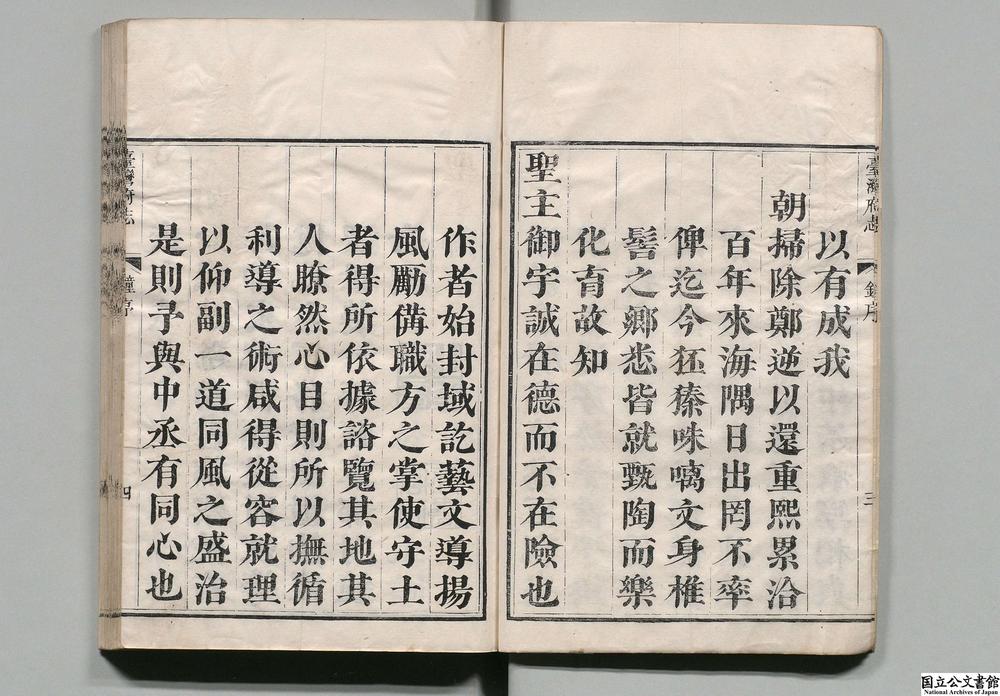 臺灣府志 鐘序 三
以有成我
朝掃除鄭逆以還重熙累洽
百年來海隅日出罔不率
俾迄今狉獉咮文身椎
髻之鄉悉皆就甄陶而樂
化育故知
聖主御宇誠在德而不在險也
作者始封域訖藝文導揚
風勵備職方之掌使守土
者得所依據諮覽其地其
人瞭然心目則所以撫循
利導之術咸得從容就理
以仰副一道同風之盛治
是則予與中丞有同心也
臺灣府志 鐘序 四
国立公文書館
National Archives of Japan